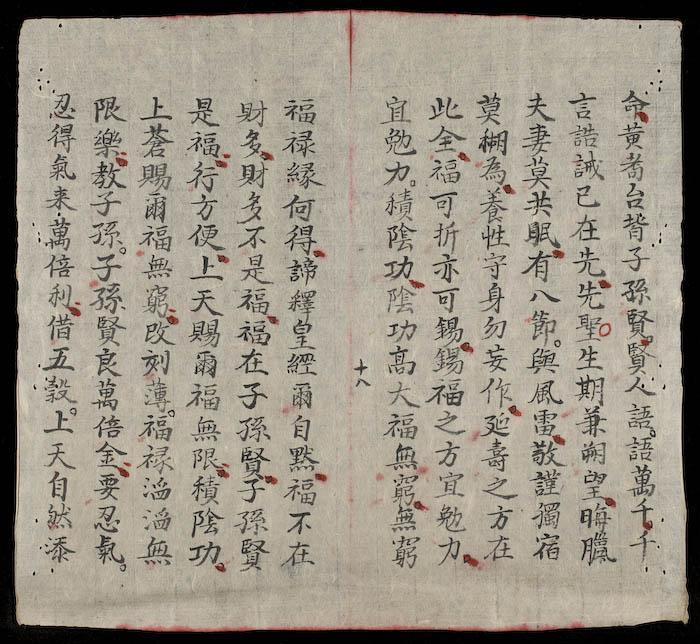 命黃耇台背子孫賢。賢人語。語萬千。千
言誥誡已在先。先聖生期兼朔望。晦臘
夫妻莫共眠。有八節。與風雷。敬謹獨宿
莫糊為。養性守身勿妄作。延壽之方在
此全。福可折亦可錫。錫福之方宜勉力。
宜勉力。積陰功。陰功高大福無窮。無窮
十八
福禄緣何得。諦釋皇經爾自黙。福不在
財多。財多不是福。福在子孫賢。子孫賢
是福。行方便。上天賜爾福無限。積陰功。
上蒼賜爾福無窮。改刻薄。福禄滔滔無
限樂。教子孫。子孫賢良萬倍金。要忍氣。
忍得氣来萬倍利。借五穀。上天自然添